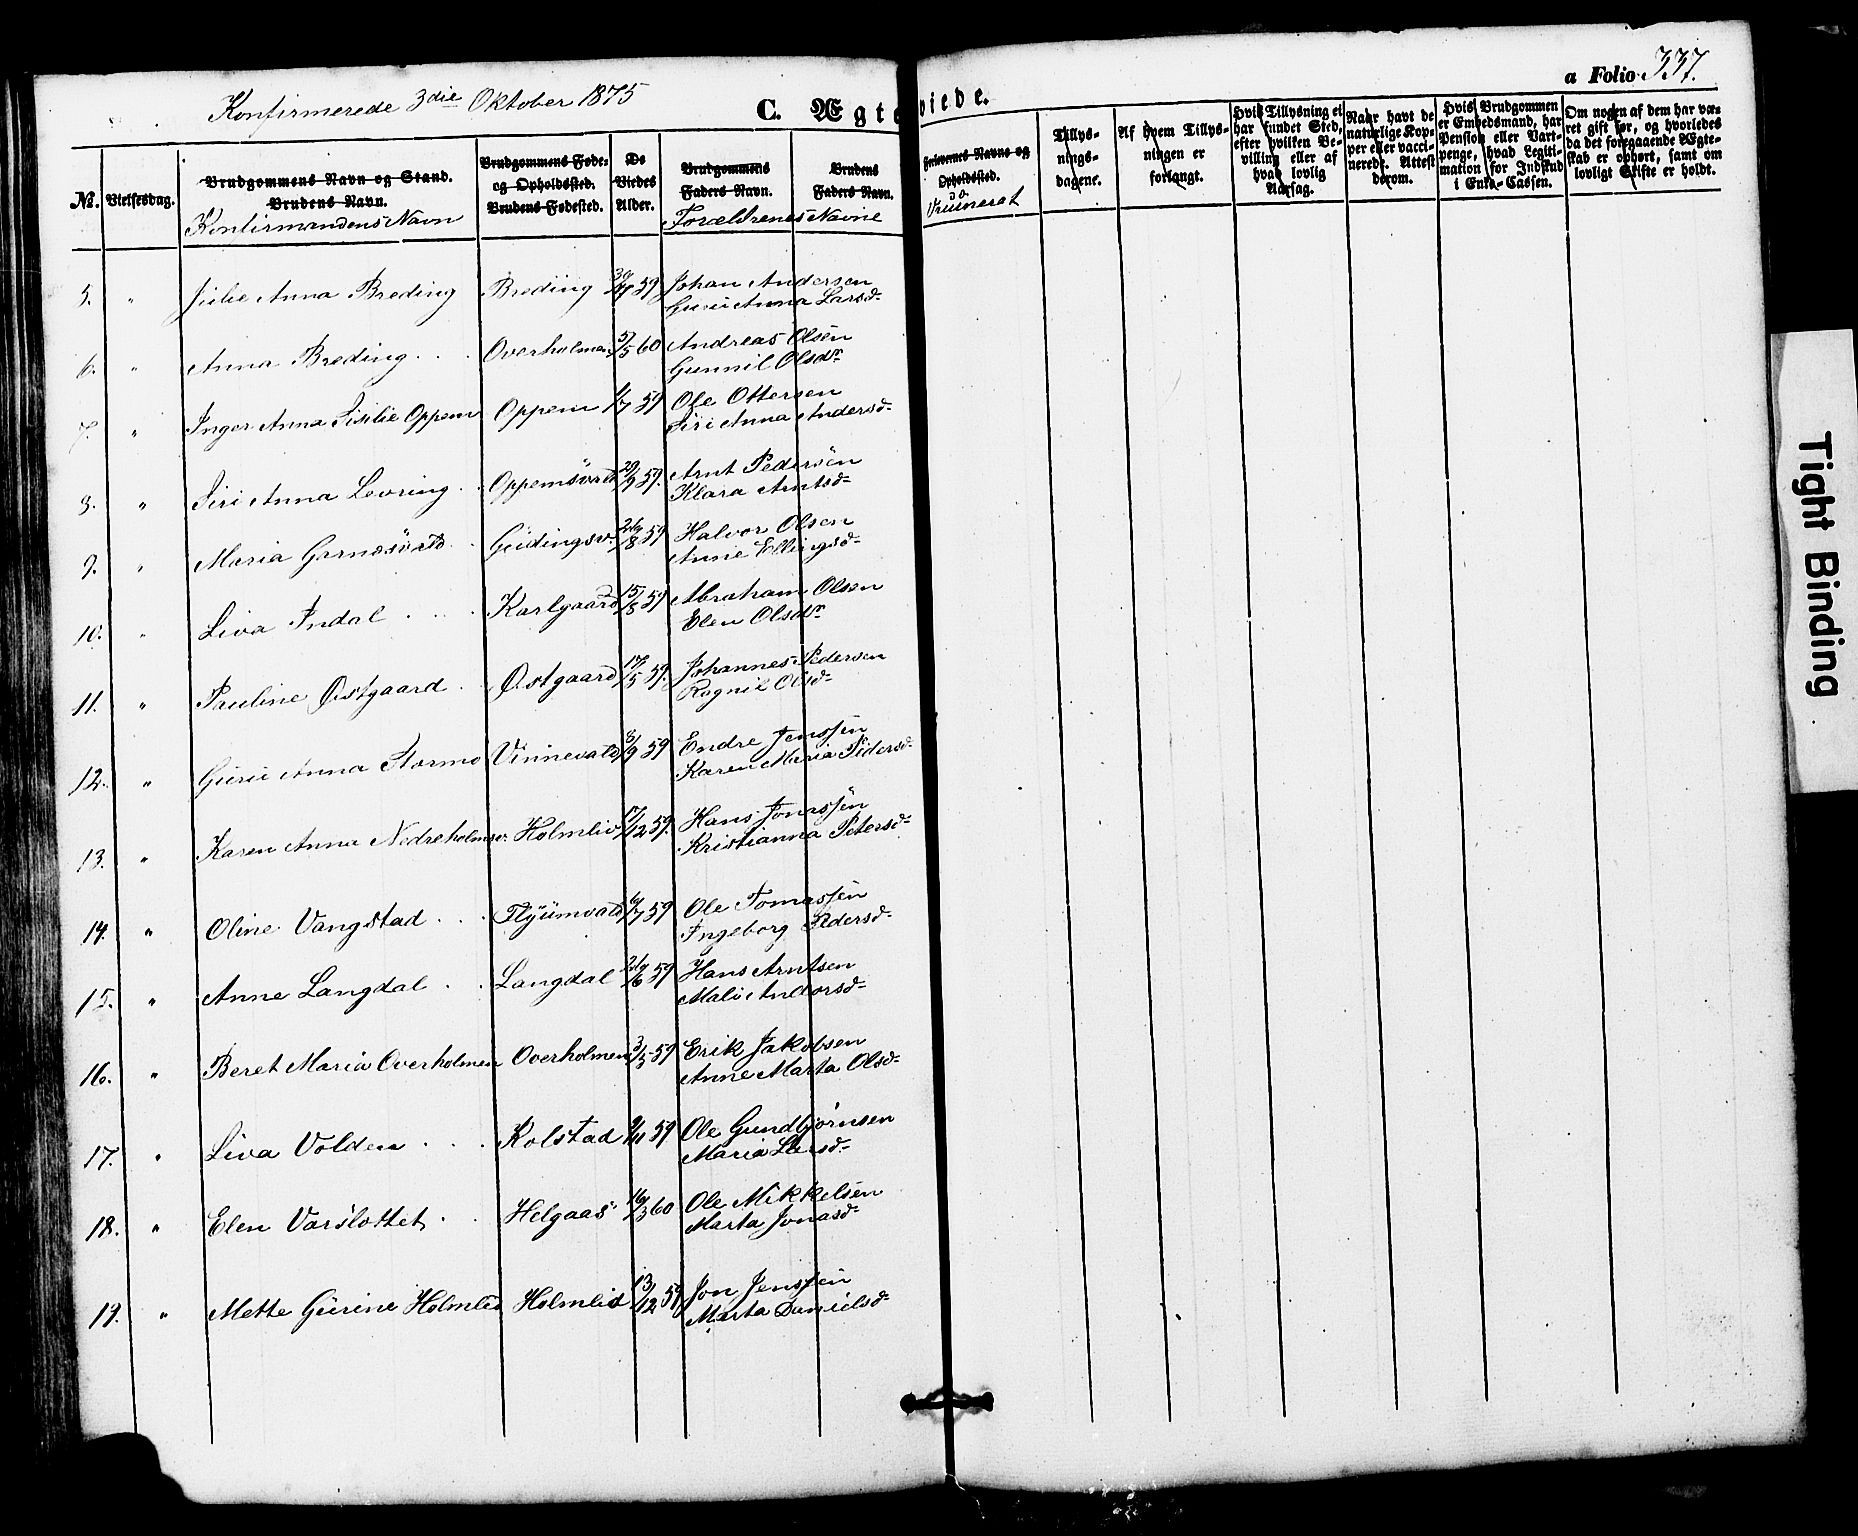 Konfirmerede 3die Oktober 1875
C. Ægte viede.
a Folio 337.
No. Vielsesdag. Brudgommens Navn og Stand. Brudens Navn. Konfirmandens Navn
Brudgommens Føde- og Opholdssted. Brudens Fødested.
De Viedes Alder.
Brudgommens Faders Navn. Brudens Faders Navn. Forældrenes Navne
Forlovernes Navne og Opholdssted.
Tillys-
nings-
dagene.
Af hvem Tillys-
ningen er
forlangt.
Hvis Tillysning ei
har fundet Sted,
efter hvilken Be-
villing eller af
hvad lovlig
Aarsag.
Naar havt de
naturlige Kop-
per eller vacci-
nerede. Attest
derom.
Hvis Brudgommen
er Embedsmand, har
Pension eller Vart-
penge, hvad Legiti-
mation for Indskud
i Enke-Cassen.
Om nogen af dem har væ-
ret gift før, og hvorledes
da det foregaaende Ægte-
skab er ophørt, samt om
lovligt Skifte er holdt.
5. " Julie Anna Breding Breding 30/11 59 Johan Andersen
Guru Anna Larsd-
6. " Anna Breding Overholmen 5/5 60 Andreas Olsen
Gunnil Olsdr
7. " Inger Anna Sisilie Oppem Oppem 1/7 59 Ole Ottersen
Siri Anna Andersd-
8. " Siri Anna Levring Oppemsvald 29/9 59. Arnt Pedersen
Klara Arntsd-
9. " Maria Garnæsvald Gudingsv. 26/8 59 Halvor Olsen
Anne Ellingsd-
10. " Liva Indal Karlgaard 15/8 59 Abraham Olsen
Elen Olsdr
11. " Pauline Østgaard Østgaard 17/5 59. Johannes Pedersen
Ragnil Olsd-
12. " Guru Anna Stormo Vinnevald 3/9 59 Endre Jenssen
Karen Maria Pedersd-
13. " Karen Anna Nedreholmsv. Holmliv. 17/12 59. Hans Jonassen
Kristianna Petersd-
14. " Oline Vangstad Flyumvald 6/7 59 Ole Tomassen
Ingeborg Pedersd-
15. " Anne Langdal Langdal 26/6 59 Hans Arntsen
Mali Andorsd-
16. " Beret Maria Overholmen Overholmen 3/5 59 Erik Jakobsen
Anne Marta Olsd-
17. " Liva Volden Kolstad 9/11 59 Ole Gundbjørnsen
Maria Larsd-
18. " Elen Varslottet Helgaas 16/3 60 Ole Mikkelsen
Marta Jonasd-
19. " Mette Gurine Holmlid Holmlid 13/12 59 Jon Jenssen
Marta Danielsd-
Tight Binding